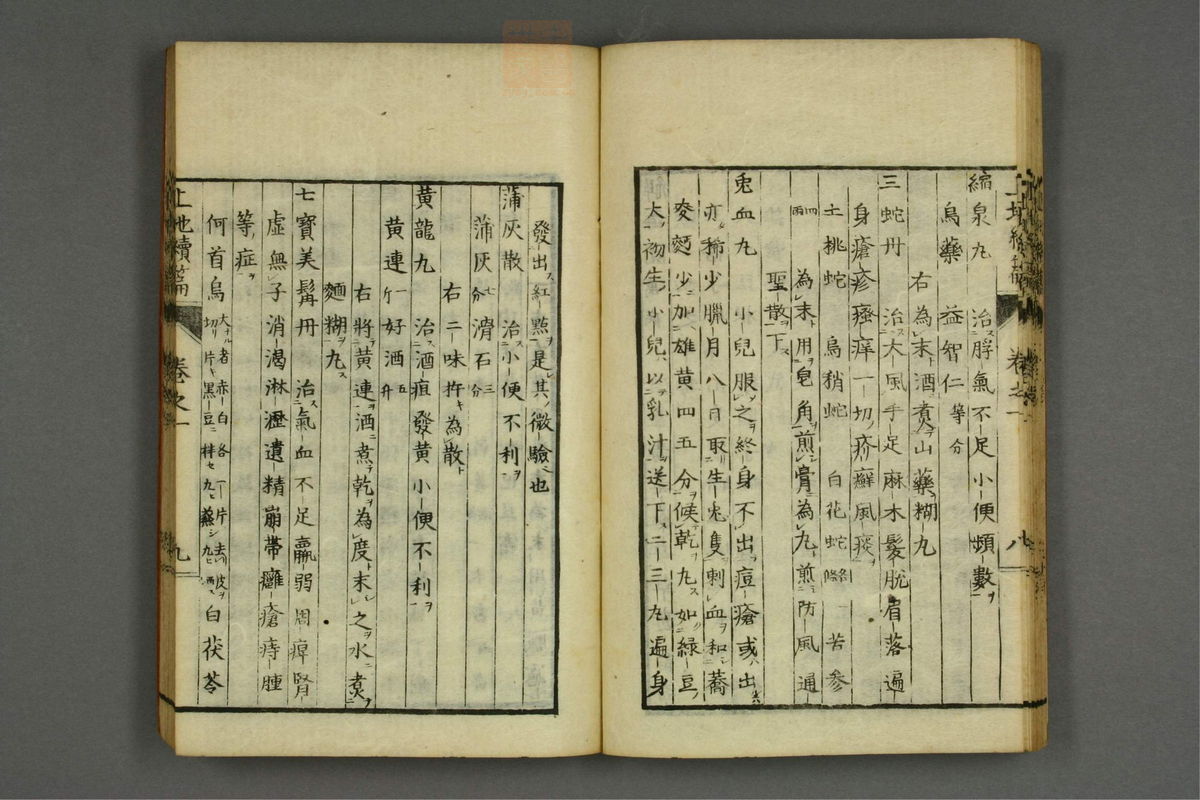 縮泉九　治脬氣不足小便頻數
烏藥　益智仁等分
右為末酒煮山藥糊九
三蛇丹　治大風手足麻木髮脫眉落遍
身瘡疹瘙痒一切疥癬風痰
土桃蛇　烏稍蛇　白花蛇　苦參
四兩為末用皂角煎膏為九煎防風通
聖散下
兎血九　小兒服之終身不出痘瘡或出
亦稀少臘月八日取生兎隻刺血和蕎
麥麪少加雄黃四五分候乾九如綠豆
大初生小兒以乳汁送下二三九遍身
卷之一　八
發出紅㸃是其微驗也
蒲灰散　治小便不利
蒲灰七分滑石三分
右二味杵為散
黃龍九　治酒疸發黃小便不利
黃連一斤好酒五升
右將黃連酒煮乾為度末之水煮
麵糊九
七寶美髯丹　治氣血不足羸弱周痺腎
虛無子消渴淋瀝遺精崩帶癰瘡痔腫
等症
何首烏大者赤白各一片去皮切片黑豆拌九蒸九晒白茯苓
上池續篇　卷之一　九